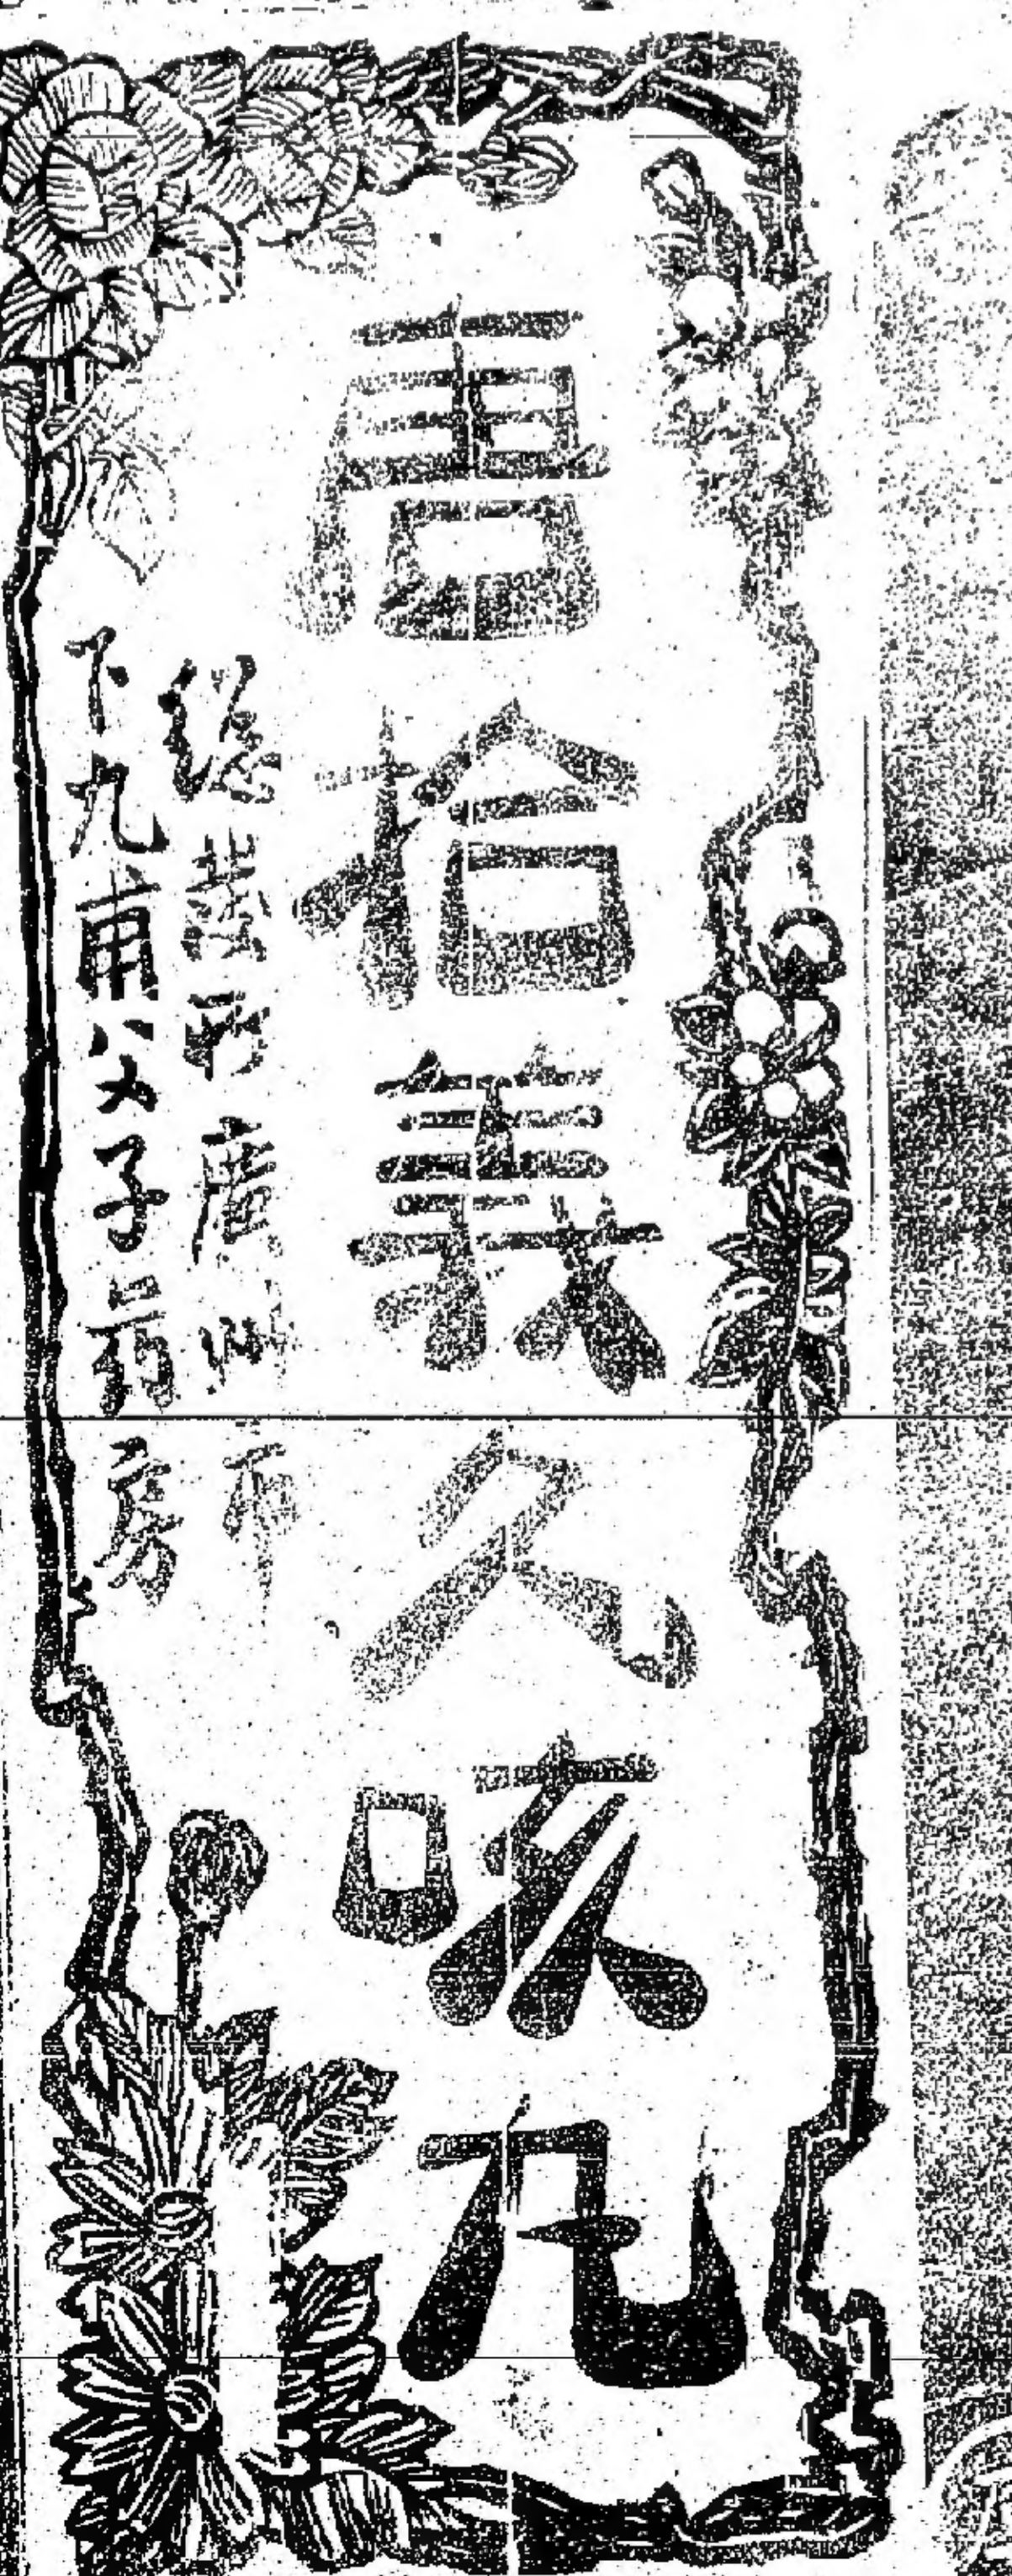 唐拾義久咳丸
總發行廣州市
下九甫父子葯房